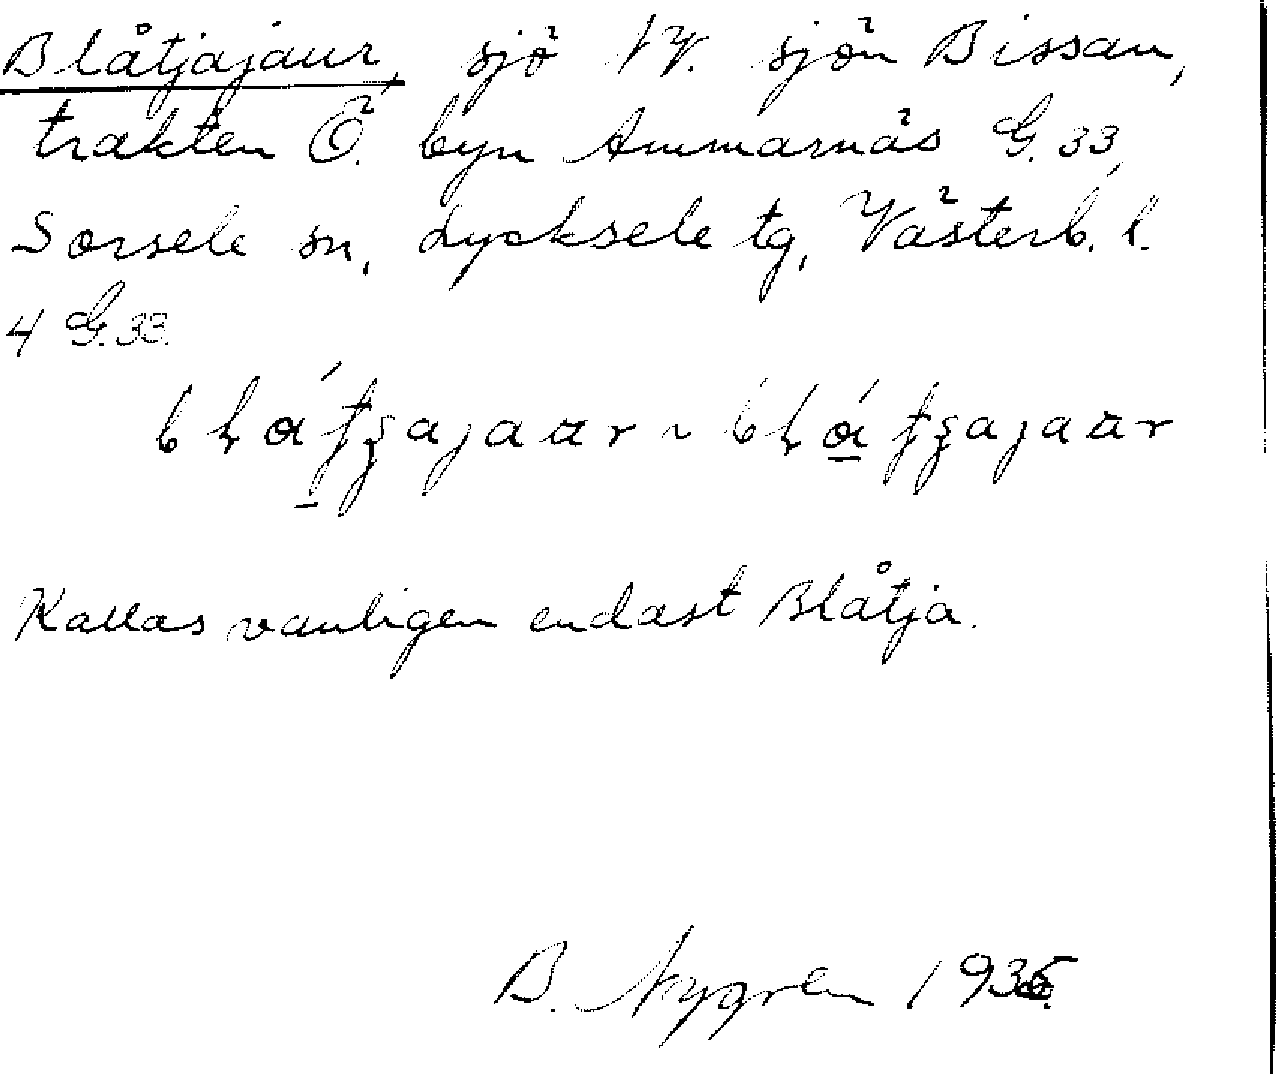 Blåtjajaur, sjö V. sjön Bissan,
trakten Ö. byn Ammarnäs G. 33,
Sorsele sn, Lycksele tg, Västerb. l.
4 G. 33.
Kallas vanligen endast Blåtja.
B. Nygren 1935.